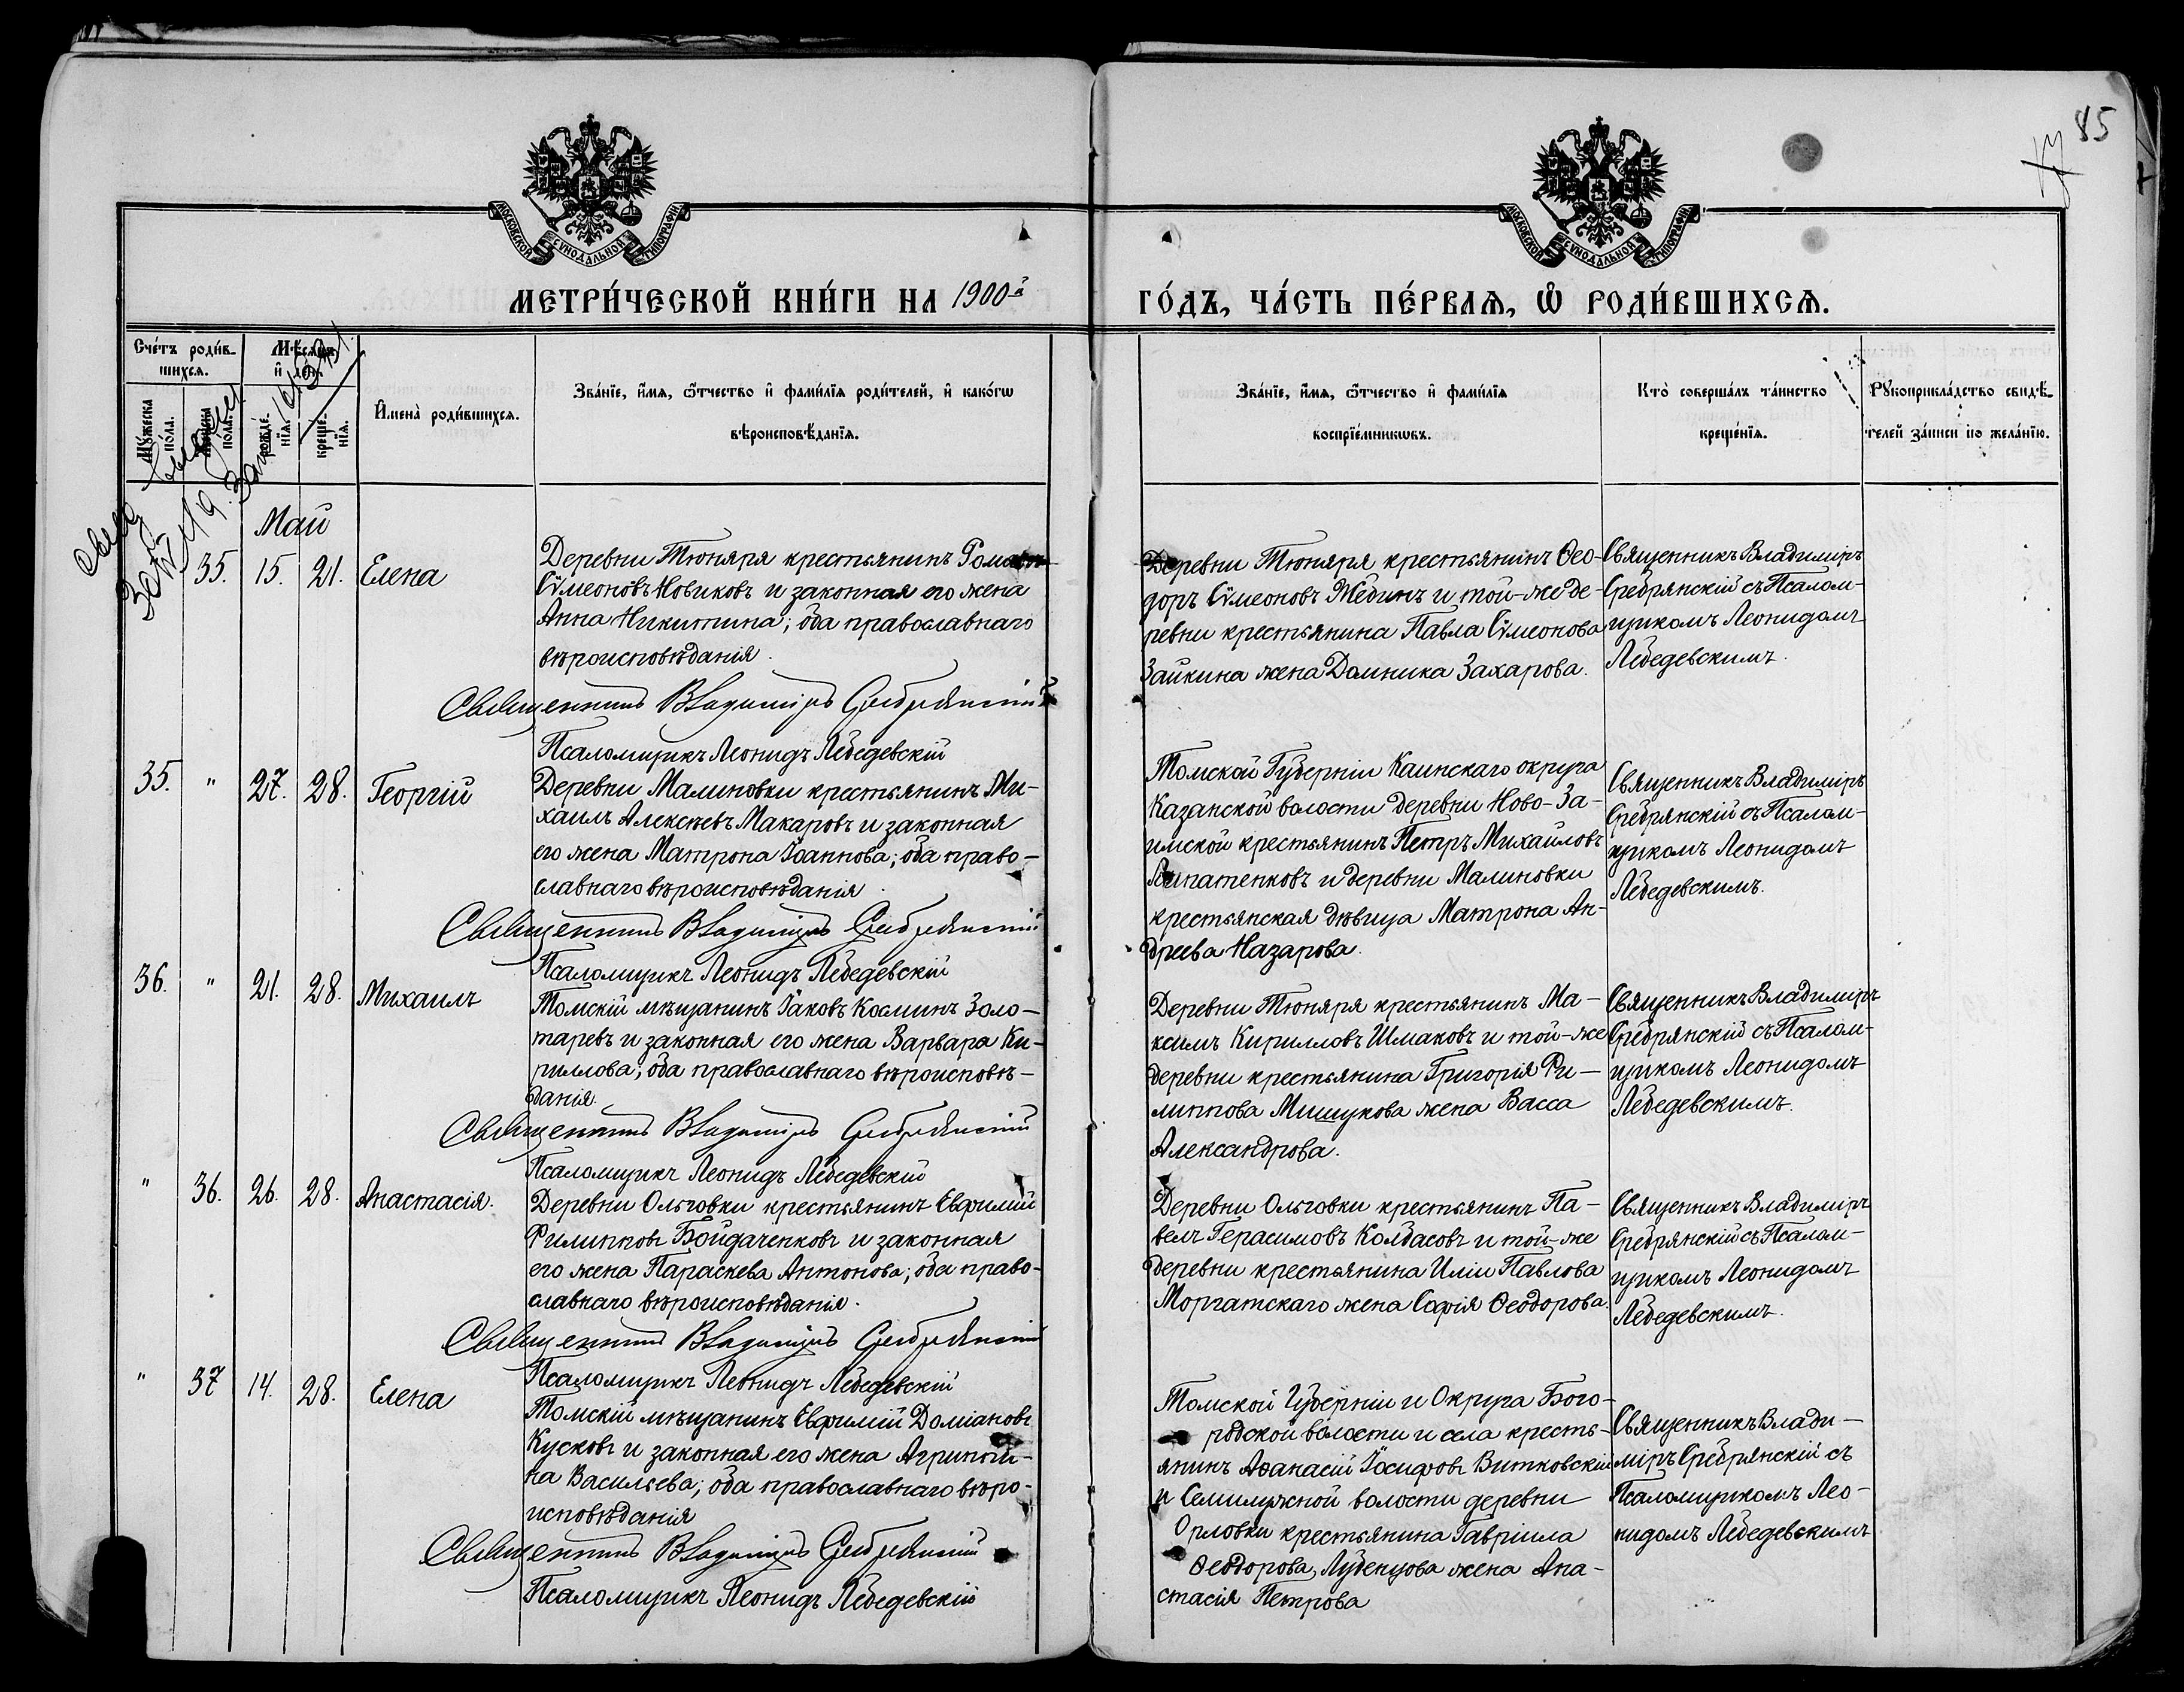 85
МОСКОВСКОЙ СѴНОДАЛЬНОЙ ТИПОГРАФІИ
МОСКОВСКОЙ СѴНОДАЛЬНОЙ ТИПОГРАФІИ
МЕТРИ́ЧЕСКОЙ КНИ́ГИ НА 1900й
ГО́ДЪ, ЧА́СТЬ ПЕ́РВАѦ, Ѡ҆ РОДИ́ВШИХСѦ.
Сче́тъ роди́в-
шихсѧ.
Мѣсѧцъ
и҆ де́нь.
Мꙋжеска
по́ла.
Женска
по́ла.
рожде́-
нїѧ.
креще́-
нїѧ.
И҆мена̀ роди́вшихсѧ.
Зва́нїе, и҆́мѧ, ѻ҆́тчество и҆ фамилїѧ роди́телей, и҆ како́гѡ
вѣроисповѣданїѧ.
Зва́нїе, и҆́мѧ, ѻ҆́тчество и҆ фамилїѧ
воспрїе́мникѡвъ.
Кто̀ соверша́лъ та́инство
креще́нїѧ.
Рꙋкоприкла́дство свидѣ-
телей за́писи по жела́нїю.
Май
35. 15. 21. Елена
Деревни Тюняря крестьянинъ Романъ
Сѵмеоновъ Новиковъ и законная его жена
Анна Никитина; оба православнаго
вѣроисповѣданія.
Священникъ Владиміръ Сребрянскій
Псаломщикъ Леонидъ Лебедевскій
Деревни Тюняря крестьянинъ Ѳео-
доръ Сѵмеоновъ Жединъ и той-же де-
ревни крестьянина Павла Сѵмеонова
Зайкина жена Домника Захарова.
Священникъ Владиміръ
Сребрянскій съ Псалом-
щикомъ Леонидомъ
Лебедевскимъ.
35. " 27. 28. Георгій
Деревни Малиновки крестьянинъ Ми-
хаилъ Алексѣевъ Макаровъ и законная
его жена Матрона Іоаннова; оба право-
славнаго вѣроисповѣданія.
Священникъ Владиміръ Сребрянскій
Псаломщикъ Леонидъ Лебедевскій
Томской Губерніи Каинскаго округа
Казанской волости деревни Ново-За-
имской крестьянинъ Петръ Михайловъ
Липатенковъ и деревни Малиновки
крестьянская дѣвица Матрона Ан-
дреева Назарова.
Священникъ Владиміръ
Сребрянскій съ Псалом-
щикомъ Леонидомъ
Лебедевскимъ.
36. " 21. 28. Михаилъ
Томскій мѣщанинъ Іаковъ Косминъ Золо-
таревъ и законная его жена Варвара Ки-
риллова; оба православнаго вѣроисповѣ-
данія.
Священникъ Владиміръ Сребрянскій
Псаломщикъ Леонидъ Лебедевскій
Деревни Тюняря крестьянинъ Ма-
ксимъ Кирилловъ Шмаковъ и той-же
деревни крестьянина Григорія Фи-
липпова Мишукова жена Васса
Александрова.
Священникъ Владиміръ
Сребрянскій съ Псалом-
щикомъ Леонидомъ
Лебедевскимъ.
" 36. 26. 28. Анастасія.
Деревни Ольговки крестьянинъ Евфимій
Филипповъ Бойдаченковъ и законная
его жена Параскева Антонова; оба право-
славнаго вѣроисповѣданія.
Священникъ Владиміръ Сребрянскій
Псаломщикъ Леонидъ Лебедевскій
Деревни Ольговки крестьянинъ Па-
велъ Герасимовъ Колбасовъ и той-же
деревни крестьянина Иліи Павлова
Моргатскаго жена Софія Ѳеодорова.
Священникъ Владиміръ
Сребрянскій съ Псалом-
щикомъ Леонидомъ
Лебедевскимъ.
" 37 14. 28. Елена
Томскій мѣщанинъ Евфимій Доміановъ
Кусковъ и законная его жена Агриппи-
на Васильева; оба православнаго вѣро-
исповѣданія
Священникъ Владиміръ Сребрянскій
Псаломщикъ Леонидъ Лебедевскій
Томской Губерніи и Округа Бого-
родской волости и села кресть-
янинъ Аѳанасій Іосифовъ Витковскій
и Семилужной волости деревни
Орловки крестьянина Гавріила
Ѳеодорова Лубенцова жена Ана-
стасія Петрова
Священникъ Влади-
міръ Сребрянскій съ
Псаломщикомъ Лео-
нидомъ Лебедевскимъ